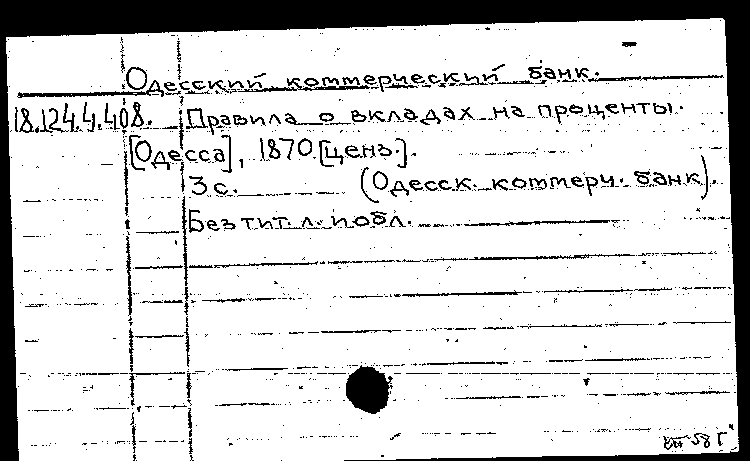 Одесский коммерческий банк.
18.124.4.408. Правила о вкладах на проценты.
[Одесса], 1870.[ценз.].
3 с. (Одесск. коммерч. банк).
Без тит. л. и обл.
58 г